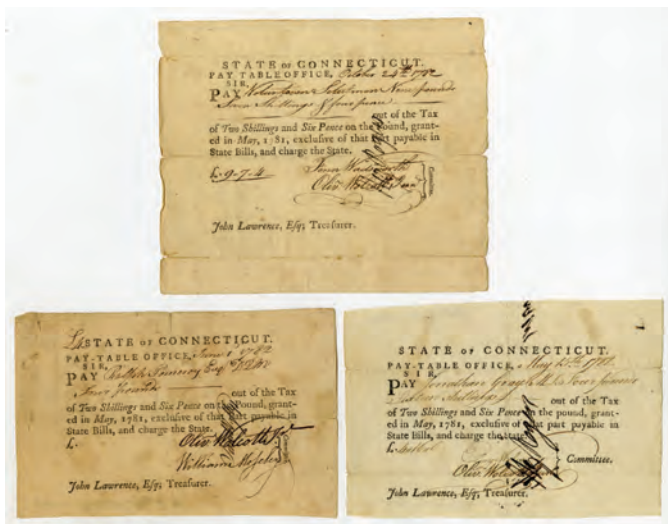 STATE OF CONNECTICUT.
PAY-TABLE OFFICE, October 24th 1782
SIR,
PAY Nine pounds
Seven Shillings & four pence
out of the Tax
of Two Shillings and Six Pence on the Pound, grant-
ed in May, 1781, exclusive of that part payable in
State Bills, and charge the State.
£ 9-7-4
Fenn Wadsworth
Oliv. Wolcott Junr
John Lawrence, Esq; Treasurer.
STATE OF CONNECTICUT.
PAY-TABLE OFFICE, June 1 1782
SIR,
PAY Esqr
Four Pounds
out of the Tax
of Two Shillings and Six Pence on the Pound, grant-
ed in May, 1781, exclusive of that part payable in
State Bills, and charge the State.
£.
Oliv. Wolcott Jr
William Moseley
John Lawrence, Esq; Treasurer.
STATE OF CONNECTICUT.
PAY-TABLE OFFICE, May 1782
SIR,
PAY Jonathan
Shillings
out of the Tax
of Two Shillings and Six Pence on the pound, grant-
ed in May, 1781, exclusive of that part payable in
State Bills, and charge the State.
£.
Committee.
Oliv. Wolcott
John Lawrence, Esq; Treasurer.